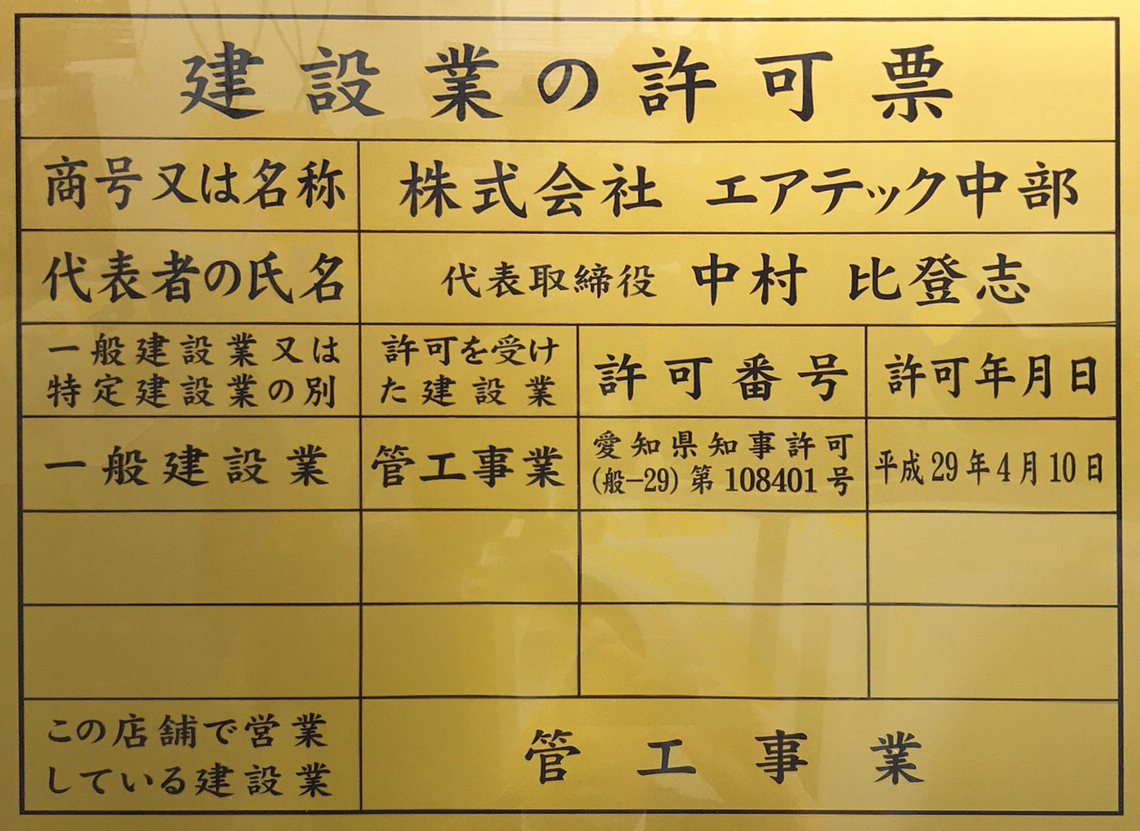 建設業の許可票
商号又は名称
株式会社 エアテック中部
代表者の氏名
代表取締役 中村 比登志
一般建設業又は
特定建設業の別
許可を受け
た建設業
許可番号
許可年月日
一般建設業
管工事業
愛知県知事許可
(般−29) 第 108401 号
平成 29 年 4 月 10 日
この店舗で営業
している建設業
管工事業